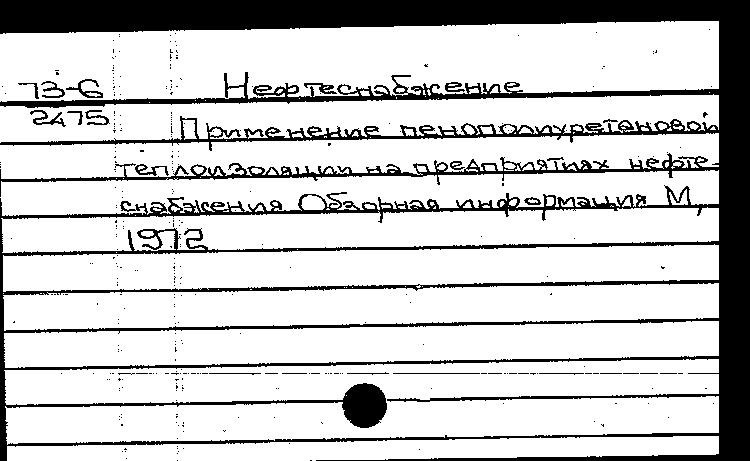 73-6 Нефтеснабжение
2475
Применение пенополиуретановой
теплоизоляции на предприятиях нефте-
снабжения Обзорная информация М,
1972